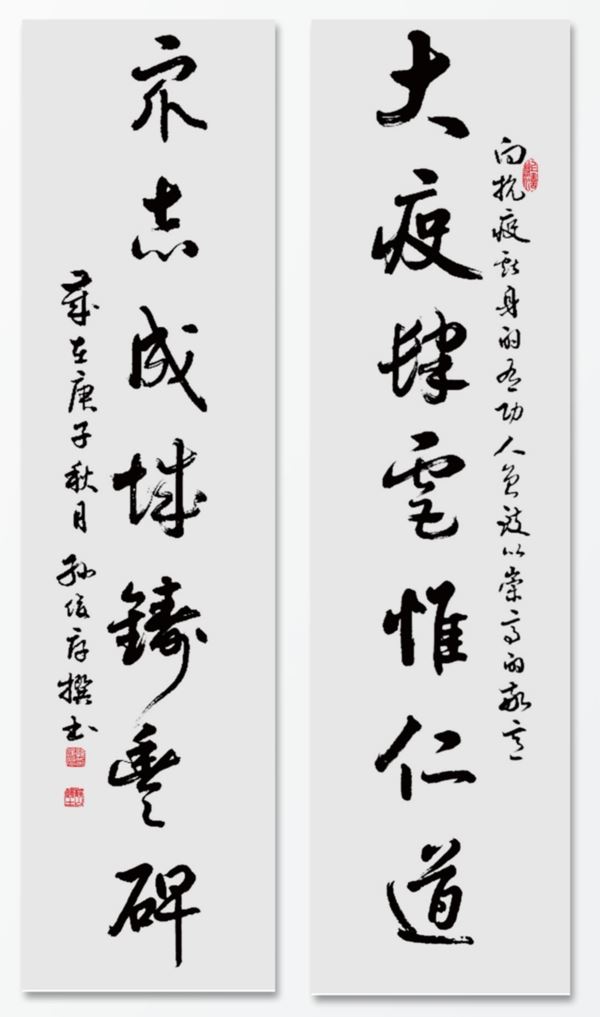 向抗疫献身的有功人员致以崇高的敬意
大疫肆虐惟仁道
眾志成城鑄豐碑
歲在庚子秋月 孙 存撰书